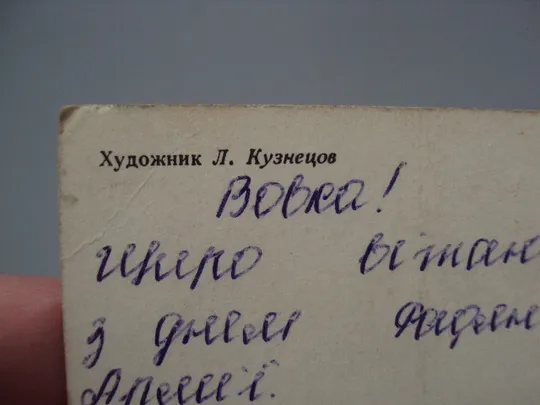 Художник Л. Кузнецов
Вовка!
Щиро вітаю
з днем Радян
Армії.